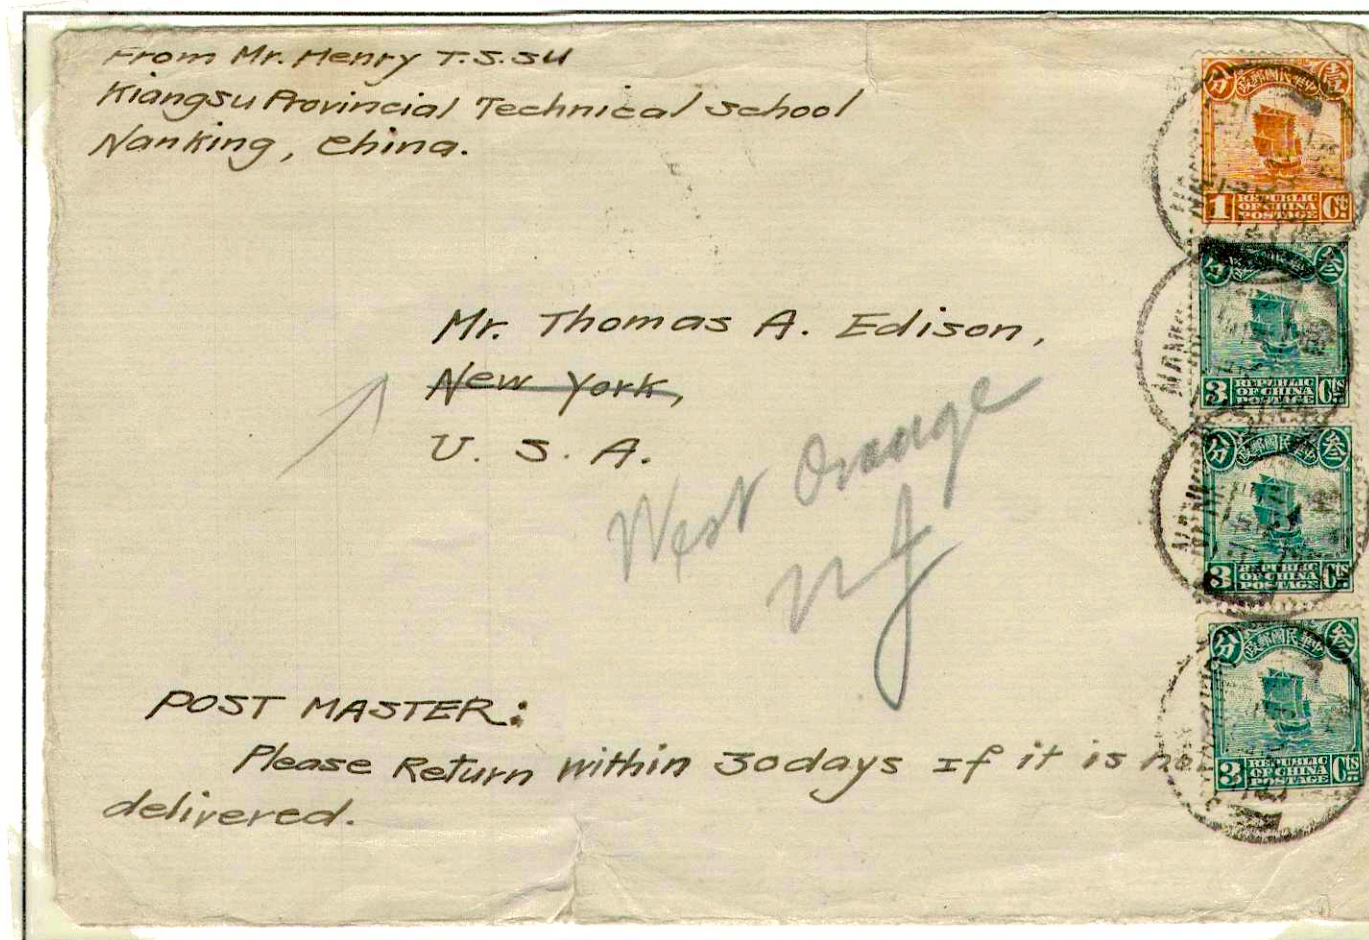 From Mr. Henry T.S.Su
Kiangsu Provincial Technical School
Nanking, China.
Mr. Thomas A. Edison,
New York,
U. S. A.
West Orange
NJ
POST MASTER:
Please Return within 30days If it is
delivered.
分 政郵國民華中 壹
1 REPUBLIC OF CHINA POSTAGE Ct.
分 政郵國民華中 叁
3 REPUBLIC OF CHINA POSTAGE Cts
分 政郵國民華中 叁
3 REPUBLIC OF CHINA POSTAGE Cts
分 政郵國民華中 叁
3 REPUBLIC OF CHINA POSTAGE Cts